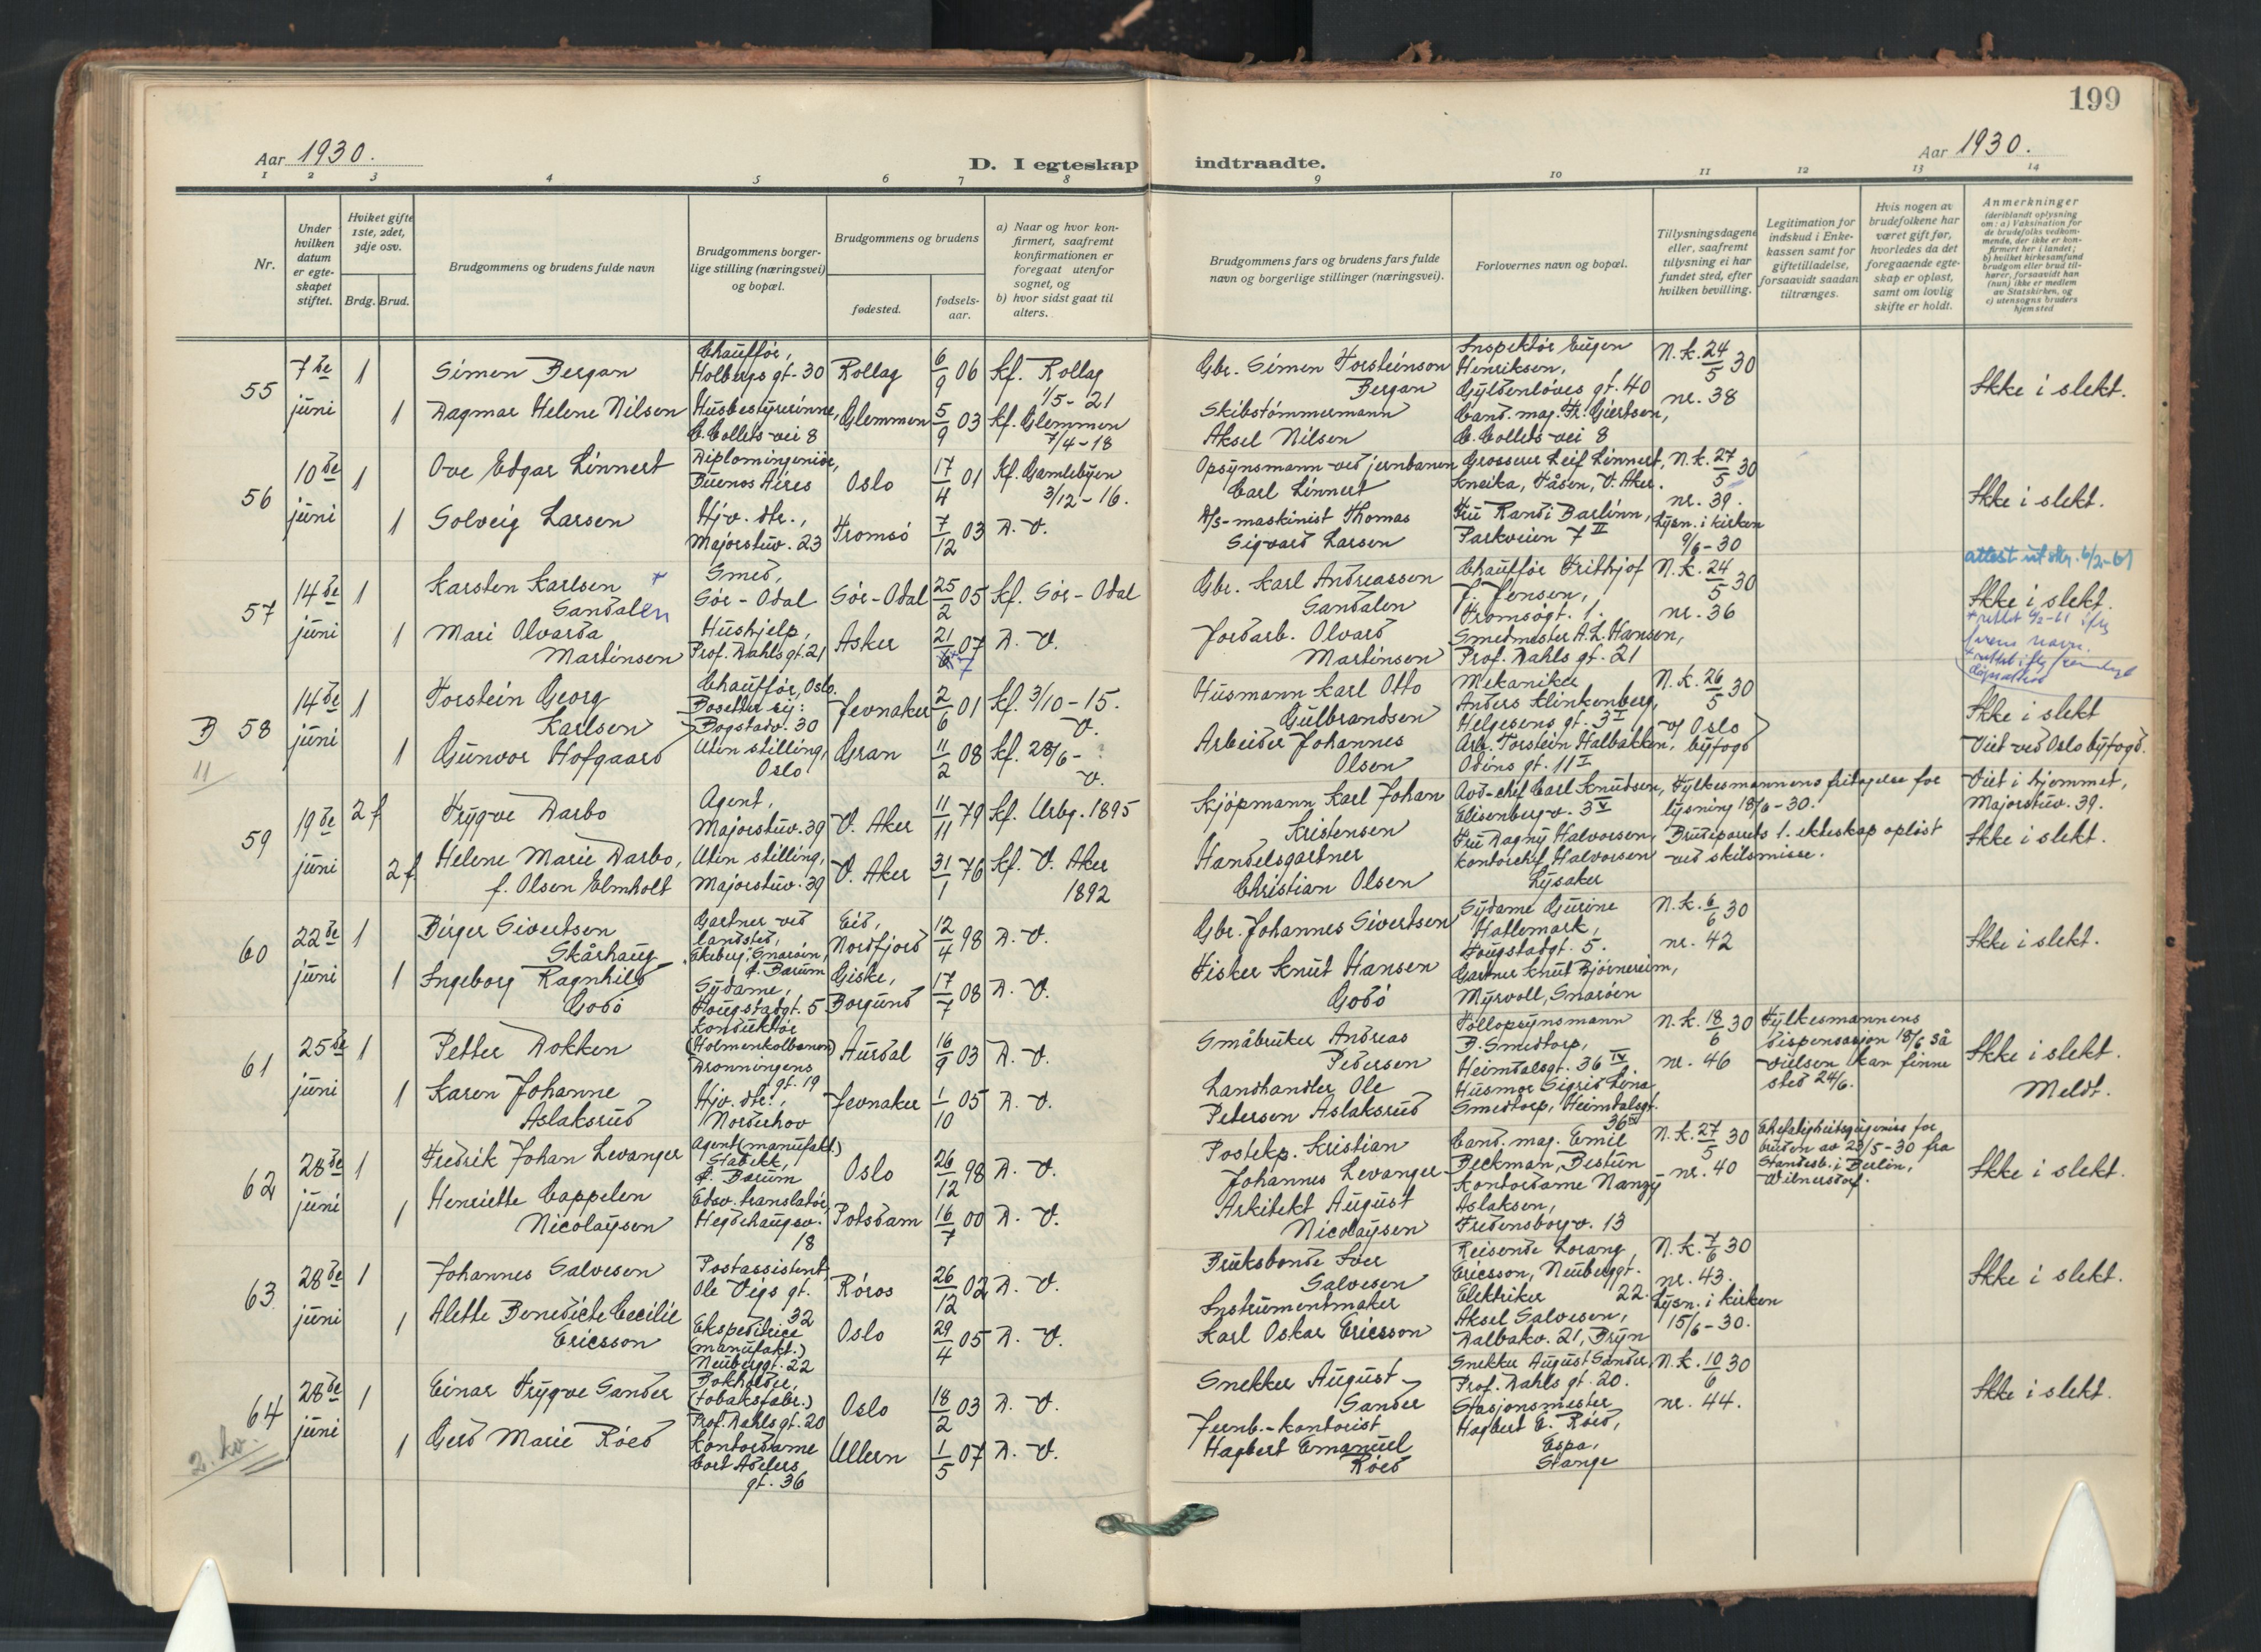 199
Aar 1930.
D. I egteskap indtraadte.
Aar 1930.
1 2 3 4 5 6 7 8 9 10 11 12 13 14
Nr.
Under hvilken datum er egteskapet stiftet.
Hvilket gifte 1ste, 2det, 3dje osv.
Brdg. Brud.
Brudgommens og brudens fulde navn
Brudgommens borgerlige stilling (næringsvei) og bopæl.
Brudgommens og brudens
fødested.
fødselsaar.
a) Naar og hvor konfirmert, saafremt konfirmationen er foregaat utenfor sognet, og
b) hvor sidst gaat til alters.
Brudgommens fars og brudens fars fulde navn og borgerlige stillinger (næringsvei).
Forlovernes navn og bopæl.
Tillysningsdagene eller, saafremt tillysning ei har fundet sted, efter hvilken bevilling.
Legitimation for indskud i Enkekassen samt for giftetilladelse, forsaavidt saadan tiltrænges.
Hvis nogen av brudefolkene har været gift før, hvorledes da det foregaaende egteskap er opløst, samt om lovlig skifte er holdt.
Anmerkninger
(deriblandt oplysning om: a) Vaksination for de brudefolks vedkommende, der ikke er konfirmert her i landet; b) hvilket kirkesamfund brudgom eller brud tilhører, forsaavidt han (hun) ikke er medlem av Statskirken, og c) utensogns bruders hjemsted
55
7de juni
1
Simen Bergan
Chauffør, Holbergs gt. 30
Rollag
6/9 06
Kf. Rollag 1/5-21
Gbr. Simen Thorsteinson Bergan
Inspektør Eugen Henriksen, Gyldenløves gt. 40
N.k. 24/5 30
nr. 38
Ikke i slekt.
1
Dagmar Helene Nilsen
Husbestyrerinne, C. Collets vei 8
Glemmen
5/9 03
Kf. Glemmen 7/4-18
Skibstømmermann Aksel Nilsen
Cand. mag. Fr. Giertsen, C. Collets vei 8
56
10de juni
1
Ove Edgar Linnert
Diplomingeniør, Buenos Aires
Oslo
17/4 01
Kf. Gamlebyen 3/12-16.
Opsynsmann ved jernbanen Carl Linnert
Grosserer Leif Linnert, Kneika, Tåsen, V. Aker.
N.k. 27/5 30
nr. 39.
Lysn. i kirken 9/6-30
Ikke i slekt.
1
Solveig Larsen
Hjv. dtr., Majorstuv. 23
Tromsø
7/12 03
D. V.
A/s-maskinist Thomas Sigvard Larsen
Fru Randi Barlinn, Parkveien 7 II
57
14de juni
1
Karsten Karlsen
Sandalen
Smed, Sør-Odal
Sør-Odal
25/2 05
Kf. Sør-Odal
Gbr. Karl Andreassen Sandalen
Chauffør Frithjof F. Jensen, Tromsøgt. 1.
N.k. 24/5 30
nr. 36
attest utskr. 6/2-61
Ikke i slekt.
1
Mari Olvarda Martinsen
Hushjelp, Prof. Dahls gt. 21
Asker
21/6 07
7
D. V.
Jordarb. Olvard Martinsen
Smedmester A. L. Hansen, Prof. Dahls gt. 21
B 58
11
14de juni
1
Torstein Georg Karlsen
Chauffør, Oslo. Bosetter sig: Bogstadv. 30
Jevnaker
2/6 01
Kf. 3/10-15. V.
Husmann Karl Otto Gulbrandsen
Mekaniker Anders Klinkenberg, Helgesens gt. 3 I
N.k. 26/5 30
v/ Oslo byfogd
Ikke i slekt
Viet ved Oslo byfogd.
1
Gunvor Hofgaard
Uten stilling, Oslo
Gran
11/2 08
Kf. 28/6- V.
Arbeider Johannes Olsen
Arb. Torstein Halbakken, Odins gt. 11 I
59
19de juni
2 f
Trygve Darbo
Agent, Majorstuv. 39
V. Aker
11/11 79
Kf. Urbg. 1895
Kjøpmann Karl Johan Kristensen
Avd-chef Carl Knudsen, Elisenbergv. 3 V
Fylkesmannens fritagelse for lysning 18/6-30.
Viet i hjemmet, Majorstuv. 39.
2 f
Helene Marie Darbo, f. Olsen Elmholt
Uten stilling, Majorstuv. 39
V. Aker
31/1 76
Kf. V. Aker 1892
Handelsgartner Christian Olsen
Fru Dagny Halvorsen, kontorchef Halvorsen Lysaker
Brudeparrets 1. ekteskap opløst ved skilsmisse.
Ikke i slekt.
60
22de juni
1
Birger Sivertsen Skårhaug
Gartner ved landsted, Ekeberg, Snarøen, p. Bærum
Eid, Nordfjord
12/4 98
D. V.
Gbr. Johannes Sivertsen
Sydame Gurine Hatlemark, Hougstadgt. 5.
N.k. 6/6 30
nr. 42
Ikke i slekt.
1
Ingeborg Ragnhild Godø
Sydame, Hougstadgt. 5
Giske, Borgund
17/7 08
D. V.
Fisker Knut Hansen Godø
Gartner Knut Bjørnereim, Myrvoll, Snarøen
61
25de juni
1
Petter Dokken
Konduktør (Holmenkolbanen) Dronningens gt. 19
Aurdal
16/9 03
D. V.
Småbruker Andreas Pedersen
Tollopsynsmann B. Smedtorp, Heimdalsgt. 36 IV.
N.k. 18/6 30
nr. 46
Fylkesmannens dispensasjon 18/6 så vielsen kan finne sted 24/6.
Ikke i slekt.
Meldt.
1
Karen Johanne Aslaksrud
Hjv. dtr., Norderhov
Jevnaker
1/10 05
D. V.
Landhandler Ole Petersen Aslaksrud
Husmor Sigrid Lona Smedtorp, Heimdalsgt. 36 IV
62
28de juni
1
Fredrik Johan Levanger
Agent (manufakt.) Stabekk, p. Bærum
Oslo
26/12 98
D. V.
Postekp. Kristian Johannes Levanger
Cand. mag. Emil Beckman, Bestun
N.k. 27/5 30
nr. 40
Ekefelighetsvigenirs for bruden av 23/5-30 fra Standesb. i Berlin, Wilmersdorf.
Ikke i slekt.
1
Henriette Cappelen Nicolaysen
Edsv. translatør, Hegdehaugsv. 18
Potsdam
16/7 00
D. V.
Arkitekt August Nicolaysen
Kontordame Nanzy Aslaksen, Fredensborgv. 13
63
28de juni
1
Johannes Salvesen
Postassistent, Ole Vigs gt. 32
Røros
26/12 02
D. V.
Bruksbonde Iver Salvesen
Reisende Lorang Ericsson, Neuberggt. 22.
N.k. 7/6 30
nr. 43.
Lysn. i kirken 15/6-30.
Ikke i slekt.
1
Alette Benedicte Cecilie Ericsson
Ekspeditrice (manufakt.) Neuberggt. 22
Oslo
29/4 05
D. V.
Instrumentmaker Karl Oskar Ericsson
Elektriker Aksel Salvesen, Dalbakv. 21, Bryn
64
2. kv.
28de juni
1
Einar Trygve Sander
Bokholder, (tobaksfabr.) Prof. Dahls gt. 20
Oslo
18/2 03
D. V.
Snekker August Sander
Snekker August Sander, Prof. Dahls gt. 20.
N.k. 10/6 30
nr. 44.
Ikke i slekt.
1
Gerd Marie Röed
Kontordame Cort Adelers gt. 36
Ullern
1/5 07
D. V.
Jernb.-kontorist Hagbert Emanuel Röed
Stasjonsmester Hagbert E. Röed, Espa, Stange